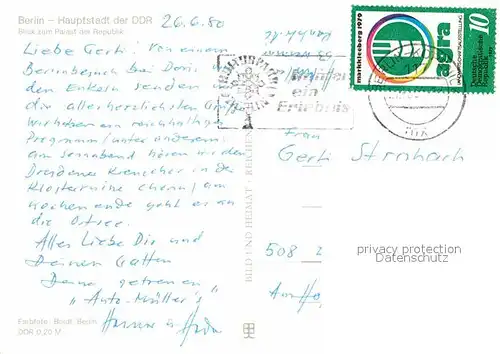 Berlin – Hauptstadt der DDR
Blick zum Palast der Republik
26.6.80
Liebe Gerti! Von einem
Berlinbesuch bei Doris
den Enkeln senden
die allerherzlichsten Grüße
Wir haben ein reichhaltiges
Programm (unter anderem
am Sonnabend hören wir den
Dresdener Kreuzchor in der
Klosterruine Chorin) am
Wochenende geht es an
die Ostsee.
Alles Liebe Dir und
Deinem Gatten
Deine getreuen
"Auto-Müller's"
Farbfoto: Boldt, Berlin
DDR 0,20 M
BILD UND HEIMAT · REICHENBACH
ein
Erlebnis
markkleeberg 1979
agra
10
Deutsche
Demokratische
Republik
Frau
Gerti
508
privacy protection
Datenschutz